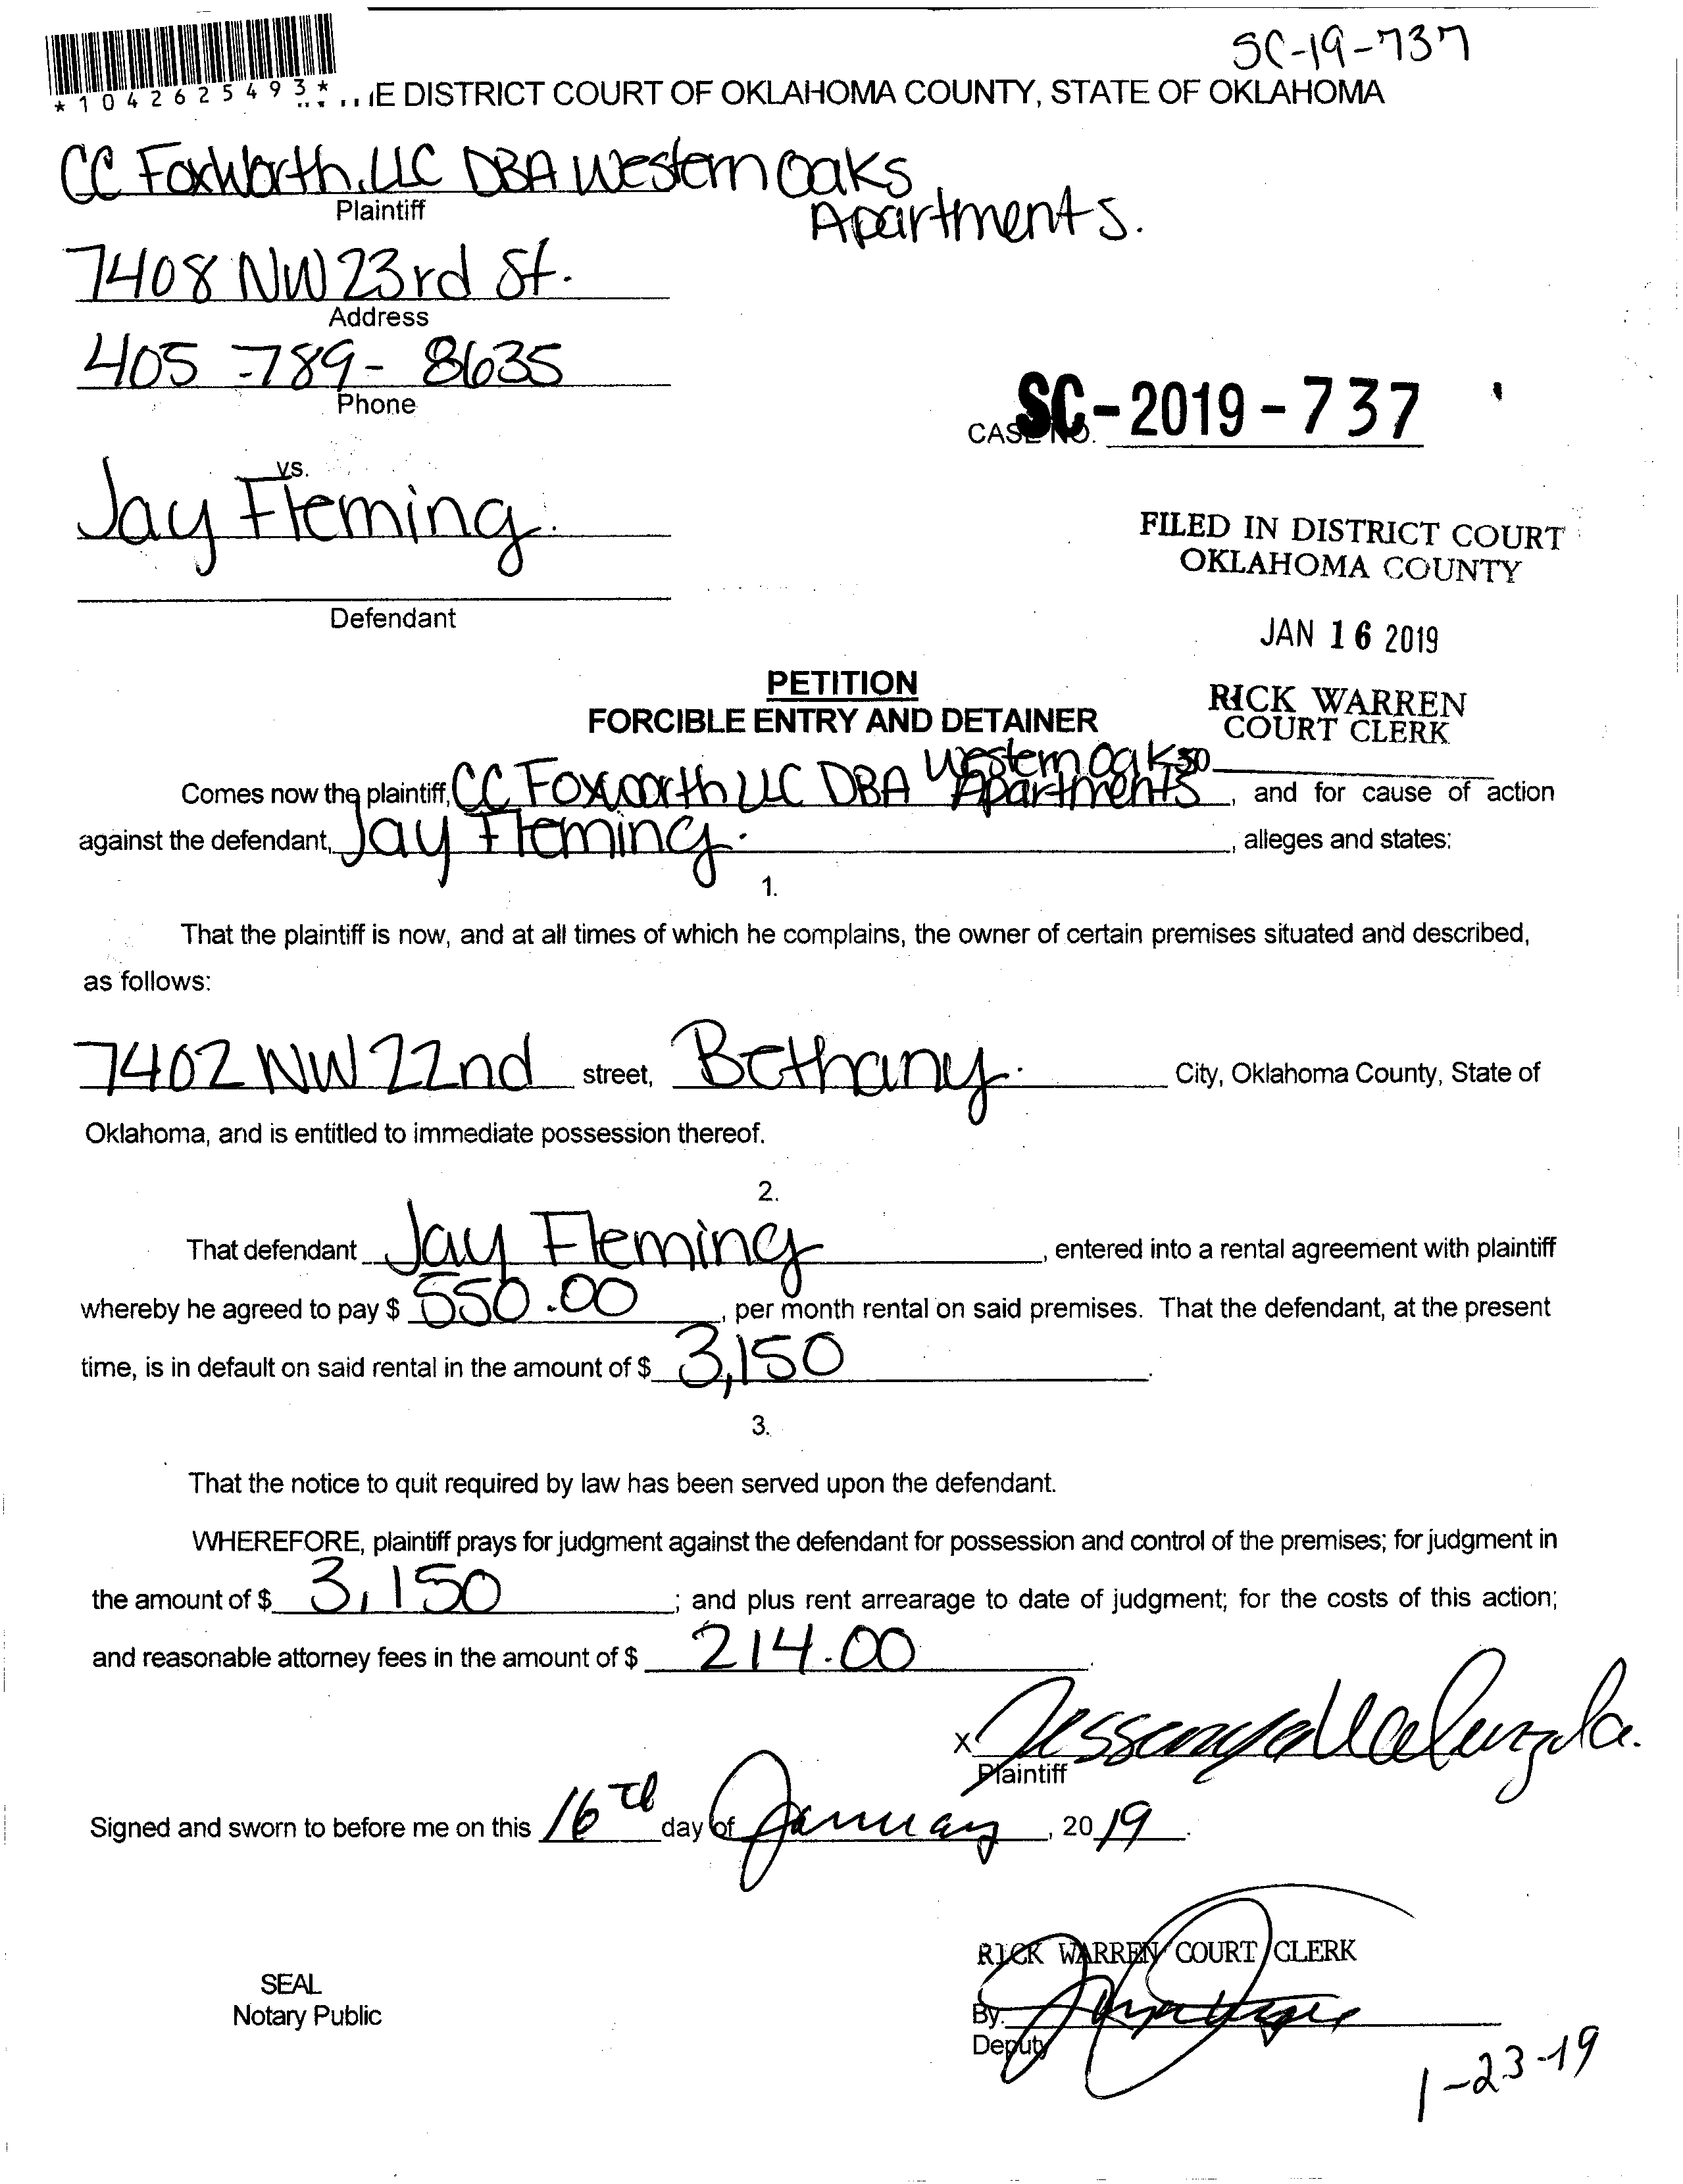 SC-19-737
*1042625493*
IE DISTRICT COURT OF OKLAHOMA COUNTY, STATE OF OKLAHOMA
CC Foxworth, LLC DBA Western Oaks
Apartments.
Plaintiff
7408 NW 23rd St.
Address
405-789-8635
Phone
CASE NO. SC-2019-737
vs.
Jay Fleming.
FILED IN DISTRICT COURT
OKLAHOMA COUNTY
Defendant
JAN 16 2019
PETITION
FORCIBLE ENTRY AND DETAINER
RICK WARREN
COURT CLERK
50
Comes now the plaintiff, CC Foxworth LLC DBA Western Oaks Apartments, and for cause of action
against the defendant, Jay Fleming. , alleges and states:
1.
That the plaintiff is now, and at all times of which he complains, the owner of certain premises situated and described,
as follows:
7402 NW 22nd street, Bethany. City, Oklahoma County, State of
Oklahoma, and is entitled to immediate possession thereof.
2.
That defendant Jay Fleming , entered into a rental agreement with plaintiff
whereby he agreed to pay $ 550.00 , per month rental on said premises. That the defendant, at the present
time, is in default on said rental in the amount of $ 3,150 .
3.
That the notice to quit required by law has been served upon the defendant.
WHEREFORE, plaintiff prays for judgment against the defendant for possession and control of the premises; for judgment in
the amount of $ 3,150 ; and plus rent arrearage to date of judgment; for the costs of this action;
and reasonable attorney fees in the amount of $ 214.00 .
X
Plaintiff
Signed and sworn to before me on this 16th day of January , 2019 .
RICK WARREN COURT CLERK
SEAL
Notary Public
By.
Deputy
1-23-19